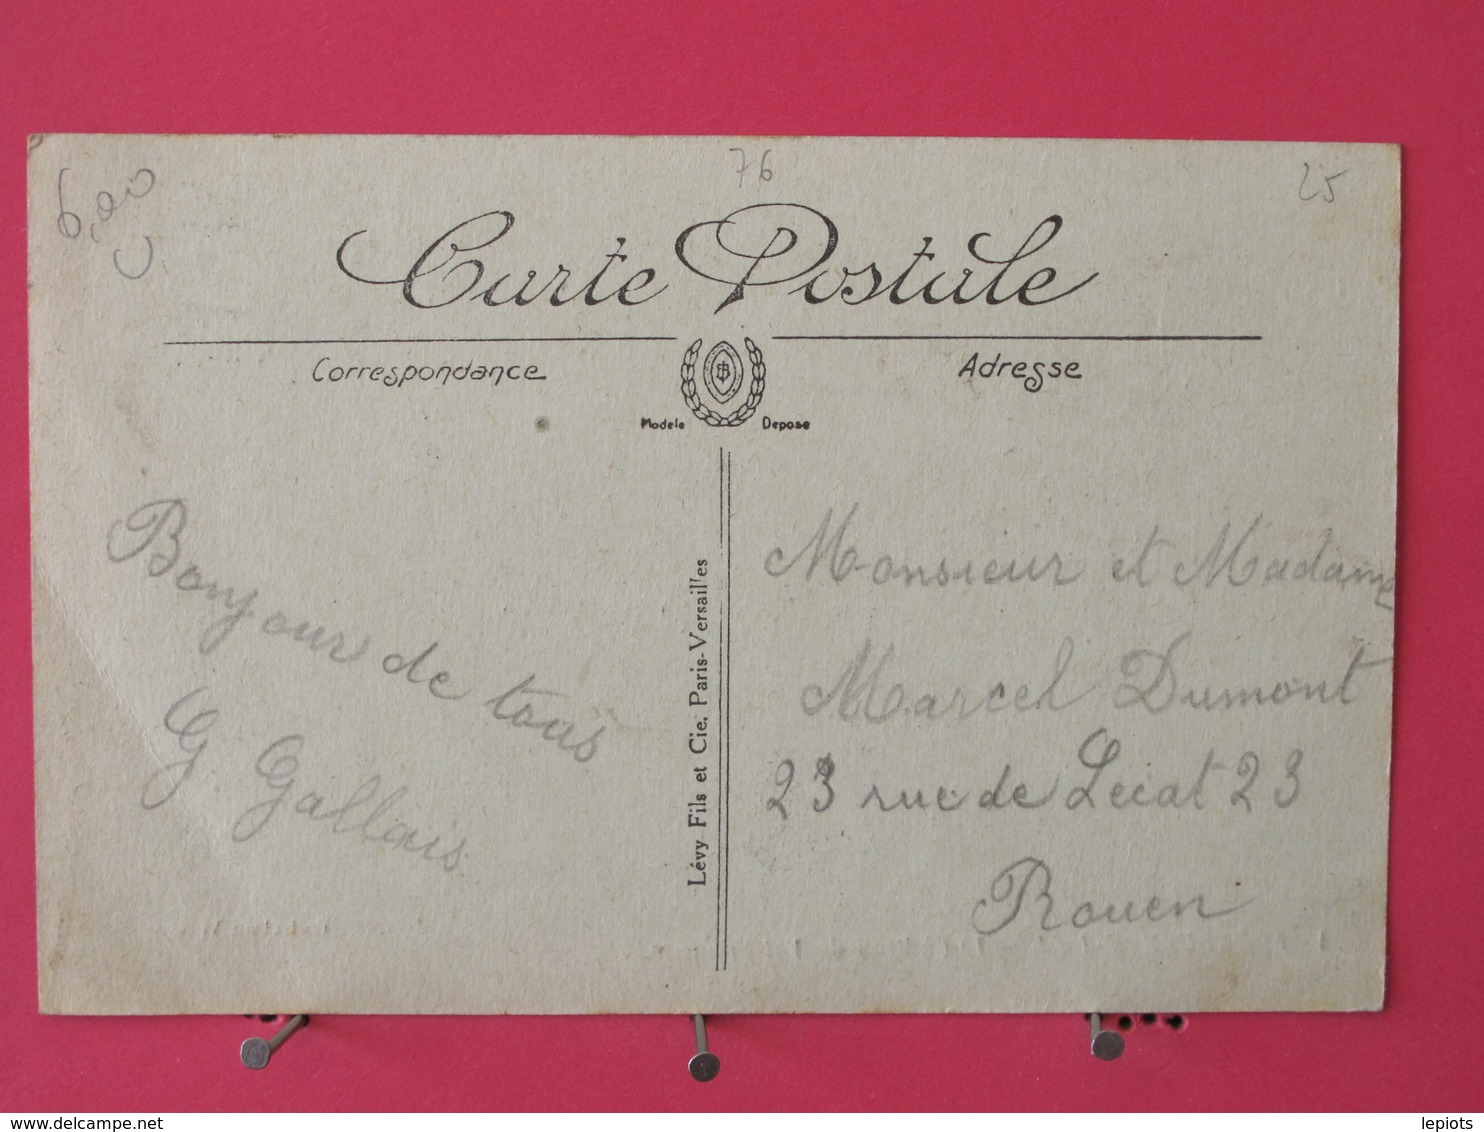 6,00
76
25
Carte Postale
Correspondance
Adresse
Modele Depose
Bonjour de tous
G. Gallais
Lévy Fils et Cie, Paris-Versailles
Monsieur et Madame
Marcel Dumont
23 rue de Lecat 23
Rouen
www.delcampe.net
lepiots